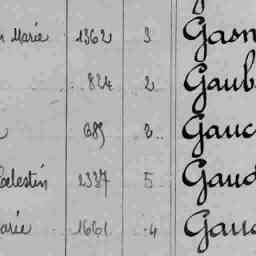 Marie 1362 3 Gasn
824 2 Gaub
689 2 Gauc
Célestin 2337 5 Gaud
arie 1661 4 Gaud